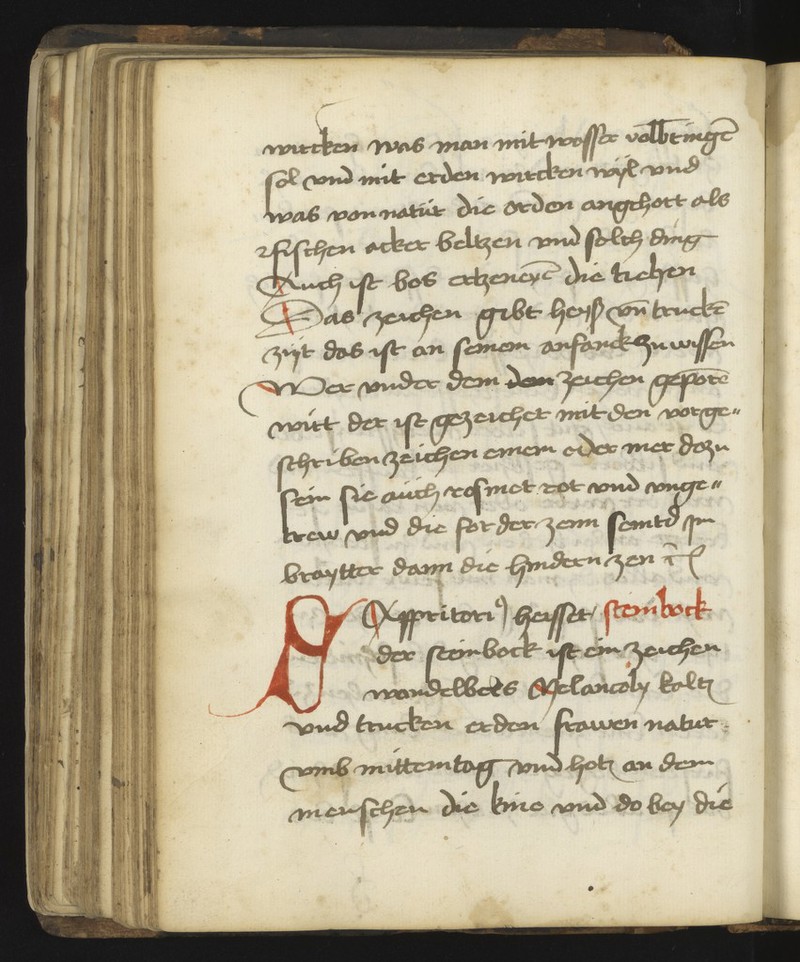 wircken was man mit wasser volbringē
sol vnd mit erden wircken wyl vnd
was von natür die erden angehort als
fischen acker beltzen vnd solch ding
Auch ist bos ertzeneyē die tiehen
Das zeichen gibt heyß vn̄ truckē
zyt das ist an seinem anfanck zu wissen
Wer vnder dem dem zeichen geporē
wirt der ist gezeichet mit den vorge〃
schriben zeichen einem oder mer dozu
sein sie auch rosmet rot vnd vnge〃
trew vnd die forder zenn seintd Im
braytter dann die hindern zen
Cappricori⁹ heisset steinbock
der steinbock ist ein zeichen
wandelbers Melancoly kaltz
vnd trucken erden frawen natur
vmb mittemtag vnd hotz an dem
menschen die knie vnd do bey die